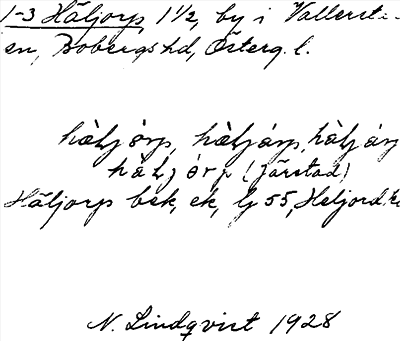 1-3 Häljorp, 1 1/2, by i Vallersta-
en, Bobergs hd, Österg. l.
hàlj órp, hàljárp, hàljárp
hàlj órp (Järstad)
Häljorp bek, ek, lj 55, Heljord
N. Lindqvist 1928